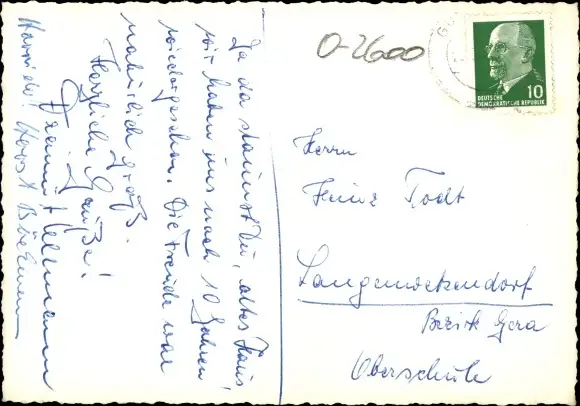 Ja da staunst Du, altes Haus!
wir haben uns nach 10 Jahren
wiedergesehen. Die Freude war
natürlich groß.
Herzliche Grüße!
Ullmann
Horst
O-2600
10
DEUTSCHE
DEMOKRATISCHE REPUBLIK
Herrn
Heinz Todt
Langenwetzendorf
Bezirk Gera
Oberschule